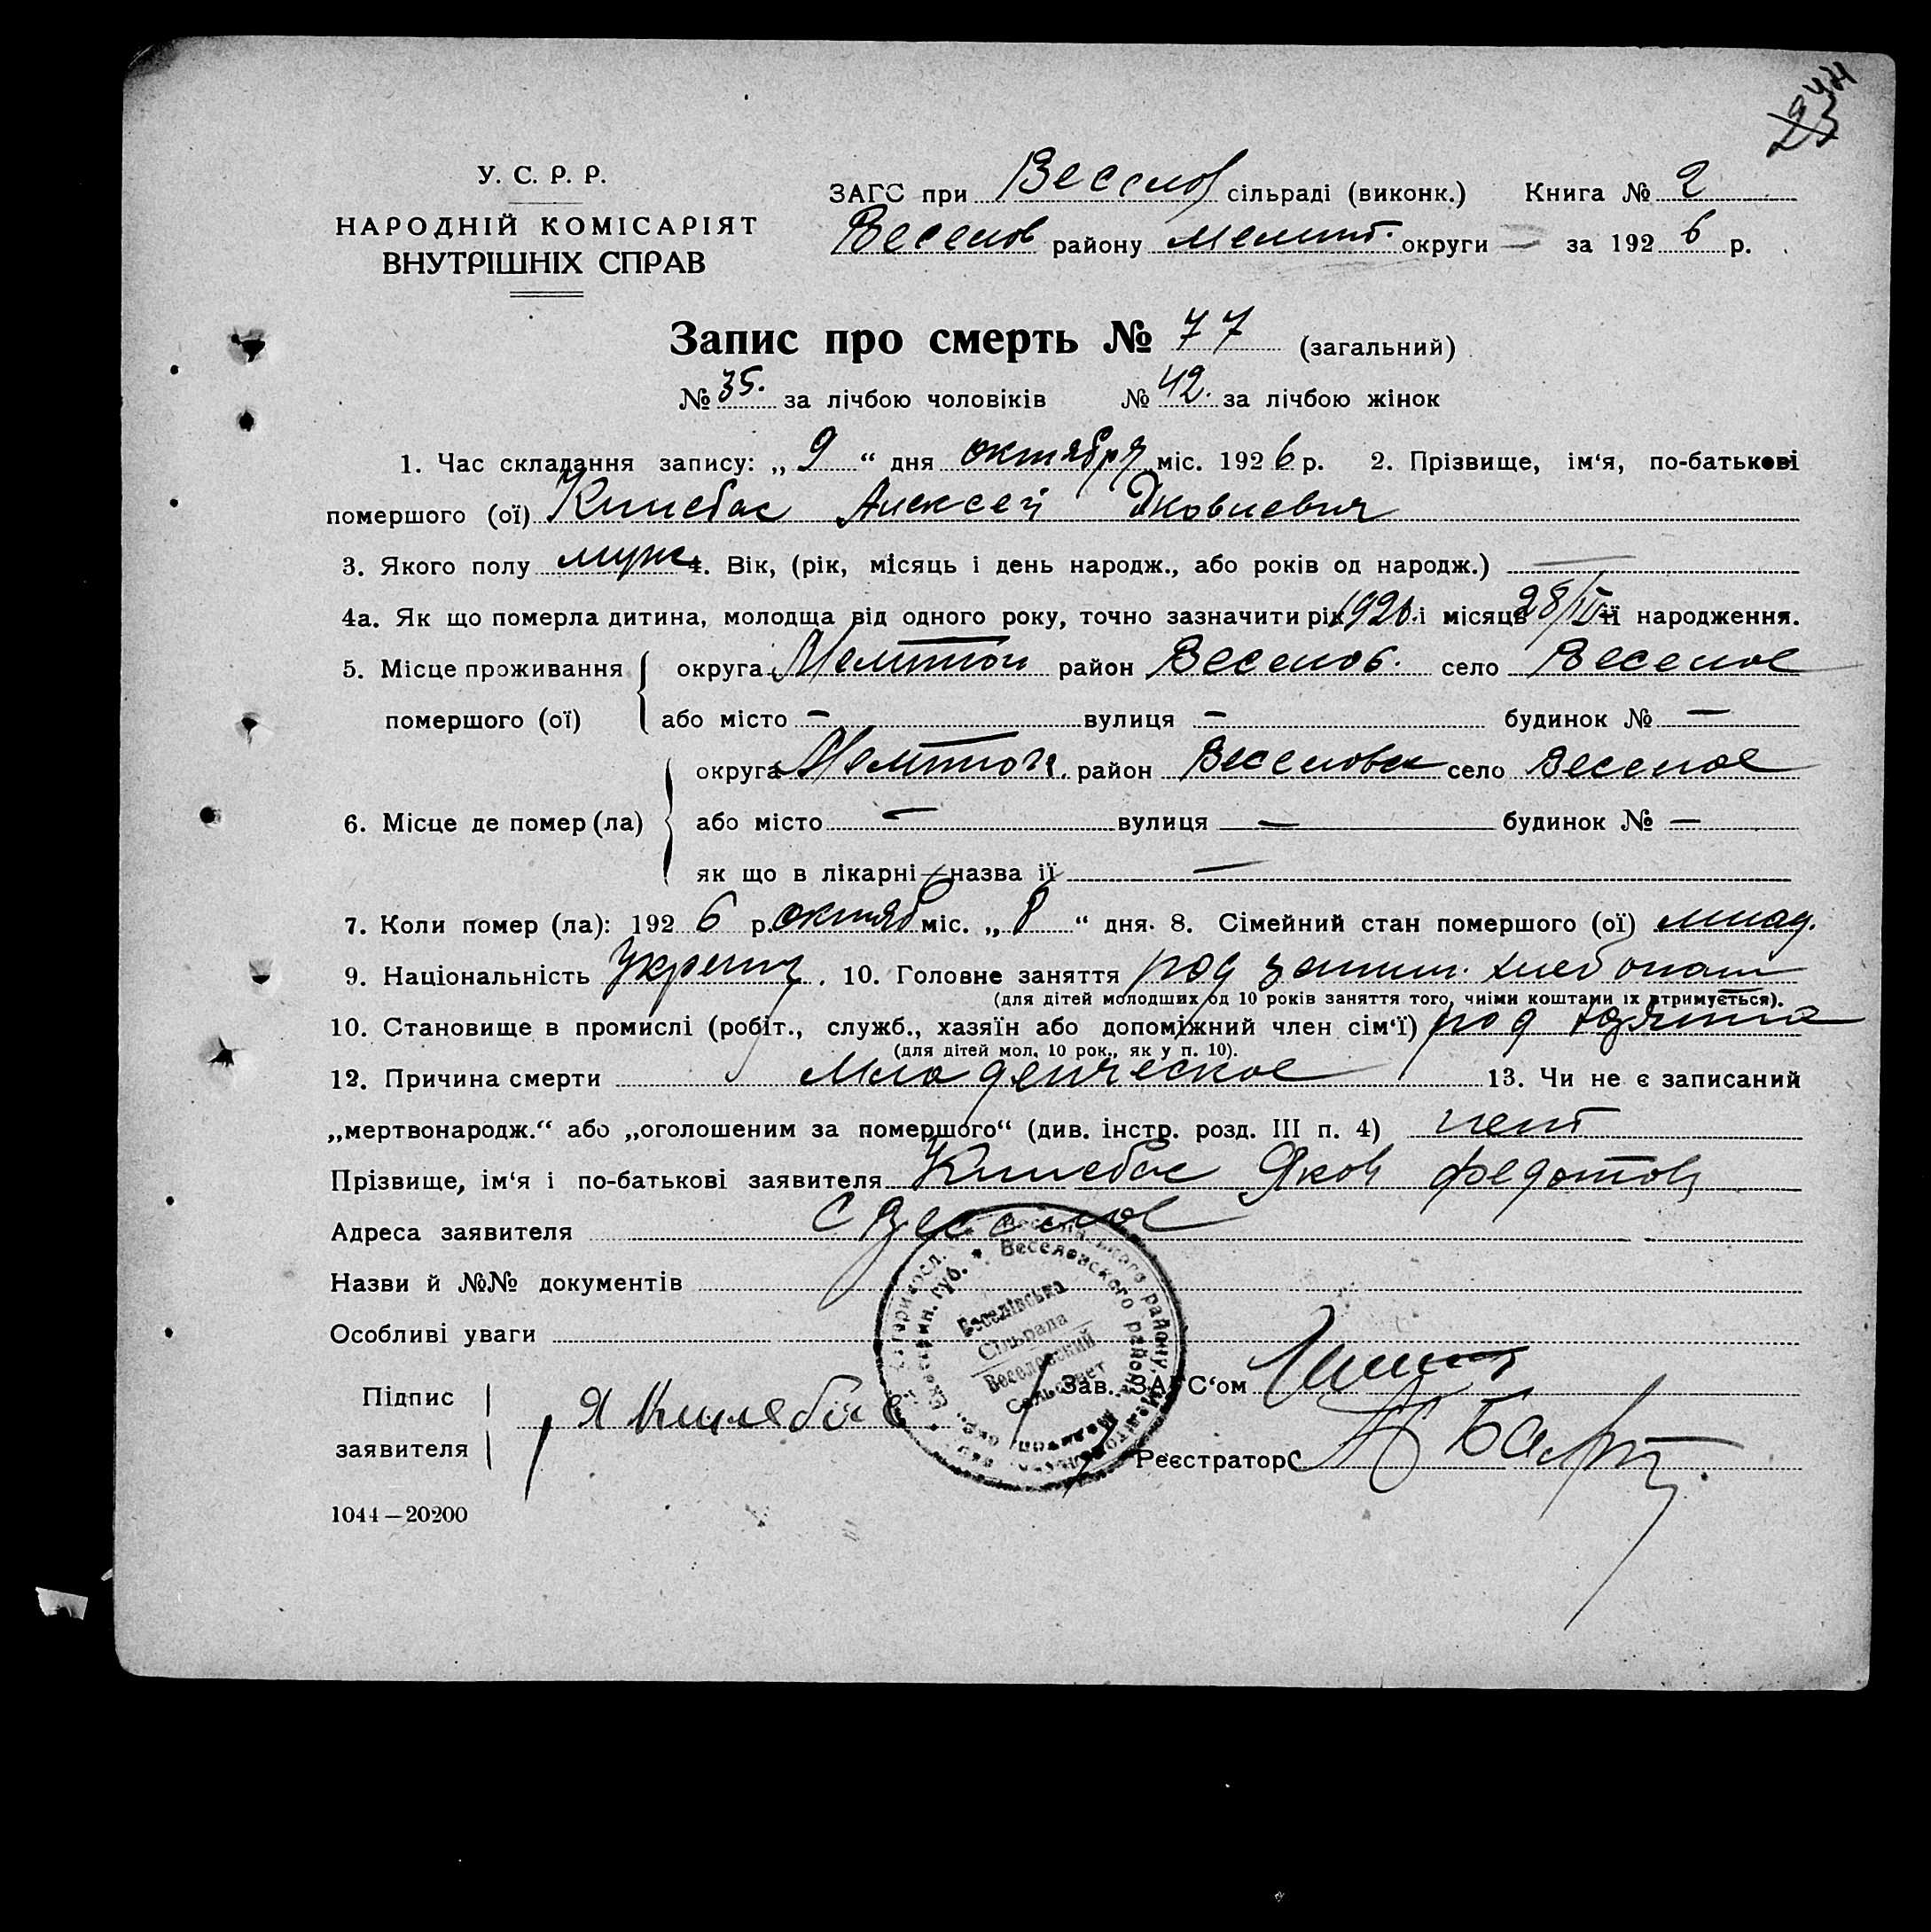 У. С. Р. Р.
НАРОДНІЙ КОМІСАРІЯТ
ВНУТРІШНІХ СПРАВ
ЗАГС при Веселов сільраді (виконк.) Книга № 2
Веселов району мелит. округи за 1926 р.
Запис про смерть № 77 (загальний)
№ 35. за лічбою чоловіків № 42. за лічбою жінок
1. Час складання запису: „ 9 “ дня октября міс. 1926 р. 2. Прізвище, ім‘я, по-батькові
помершого (ої) Алексей Яковлевич
3. Якого полу муж 4. Вік, (рік, місяць і день народж., або років од народж.) —
4а. Як що померла дитина, молодща від одного року, точно зазначити рік 1926. і місяць 28/ її народження.
5. Місце проживання округа Мелитоп район Веселов. село Веселое
помершого (ої) або місто – вулиця – будинок № —
округа Мелитоп. район Веселовск село Веселое
6. Місце де помер (ла) або місто — вулиця — будинок № —
як що в лікарні—назва її —
7. Коли помер (ла): 1926 р. октяб міс. „ 8 “ дня. 8. Сімейний стан помершого (ої) млад.
9. Національність . 10. Головне заняття род хлебопаш
(для дітей молодших од 10 років заняття того, чиїми коштами їх втримується).
10. Становище в промислі (робіт., служб., хазяїн або допоміжний член сім‘ї) род хозяина
(для дітей мол. 10 рок., як у п. 10).
12. Причина смерти Младенческое 13. Чи не є записаний
„мертвонародж.“ або „оголошеним за помершого“ (див. інстр. розд. III п. 4) нет
Прізвище, ім‘я і по-батькові заявителя Яков Федотов
Адреса заявителя с Веселое
Назви й №№ документів
Особливі уваги
Веселівська
Сільрада
Веселовский
Сельсовет
Підпис Зав. ЗАГС‘ом
заявителя Я
Реєстратор
1044—20200